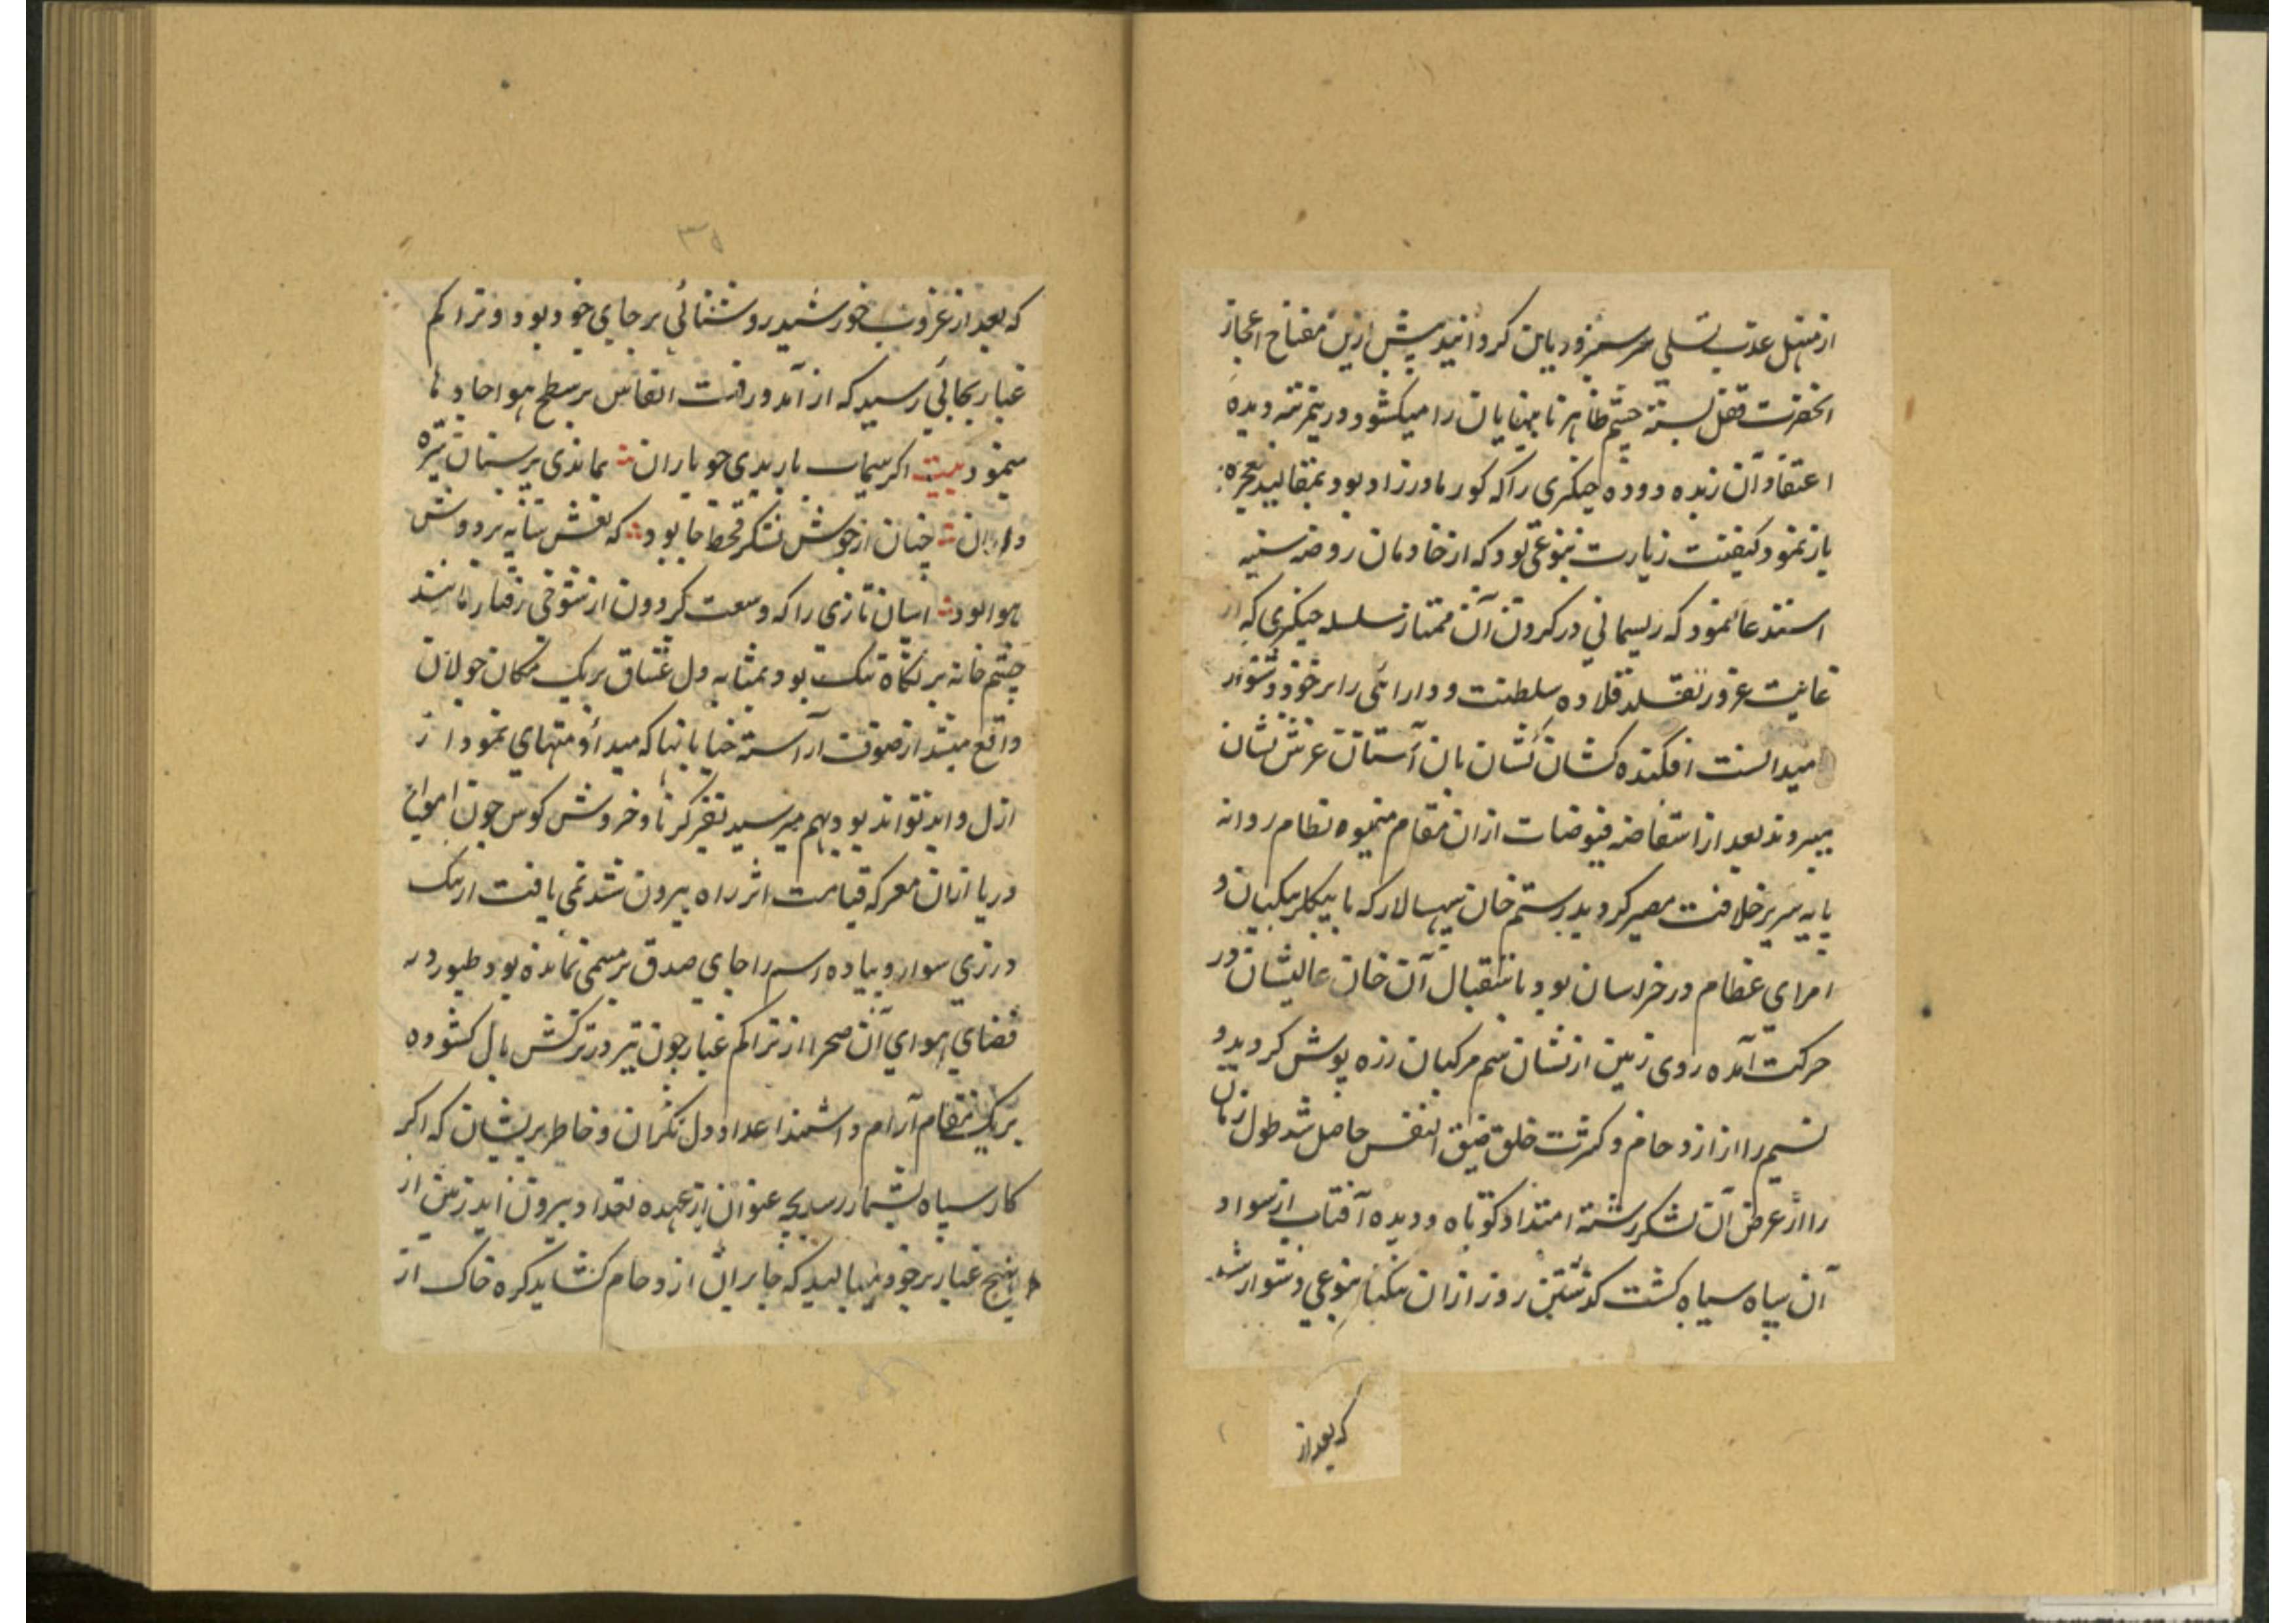 از منهل عذب تسلی سرسبز و ریان گردانید پیش ازین مفتاح اعجاز
انحضرت قفل بسته چشم ظاهر نابینایان را میکشود درینمرتبه دیده
اعتقاد آن زبده دوده چنکیزی را که کور مادرزاد بود بمقالید معجزه
باز نمود کیفیت زیارت بنوعی بود که از خادمان روضه سنیه
استدعا نمود که ریسمانی در کردن آن ممتاز سلسله چنکیزی که از
غایت غرور تقلد قلاده سلطنت و دارائی را بر خود دشوار
میدانست افکنده کشان کشان بان آستان عرش نشان
میبروند بعد از استفاضه فیوضات ازان مقام میمنه نظام روانه
پایه سریر خلافت مصیر کردید رستم خان سپهسالار که با بیکلربیکیان و
امرای عظام در خراسان بود باستقبال آن خان عالیشان در
حرکت آمده روی زمین از نشان سم مرکبان زره پوش کردید و
نسیم را از ازدحام و کثرت خلق ضیق النفس حاصل شد طول زمان
را از عرض آن لشکر رشته امتداد کوتاه و دیده آفتاب از سواد
آن سپاه سیاه کشت کذشتن روز ازان تنکنا بنوعی دشوار شد
که بعد از
۳۵
که بعد از غروب خورشید روشنائی بر جای خود بود و تراکم
غبار بجائی رسید که از آمد و رفت انفاس بر سطح هوا جاده‌ها
مینمود بیت اکر سیماب باریدی چو باران بماندی بر سنان نیزه
داران چنان از جوش لشکر قحط جا بود که نقش سایه بر دوش
هوا بود اسبان تازی را که وسعت کردون از شوخی رفتار مانند
چشم خانه بر نکاه تنک بود بمثابه دل عشاق بر یک مکان جولان
واقع میشد از صفوف آراسته خیابانها که مبدأ و منتهای نمود از
ازل و ابد تواند بود بهم میرسید نفیر کرنا و خروش کوس چون امواج
دریا ازان معرکه قیامت اثر راه بیرون شد نمی یافت از تنک
درزی سوار و پیاده اسم را جای صدق بر مسمی نمانده بود طیور در
فضای هوای آن صحرا از تراکم غبار چون تیر در ترکش بال کشوده
بر یک مقام آرام داشتند اعداد دل نکران و خاطر پریشان که اکر
کار سپاه بشمار رسد بچه عنوان از عهده تعداد بیرون آید زمین از
غبار بر خود میبالید که جابران ازدحام کشاید کره خاک از